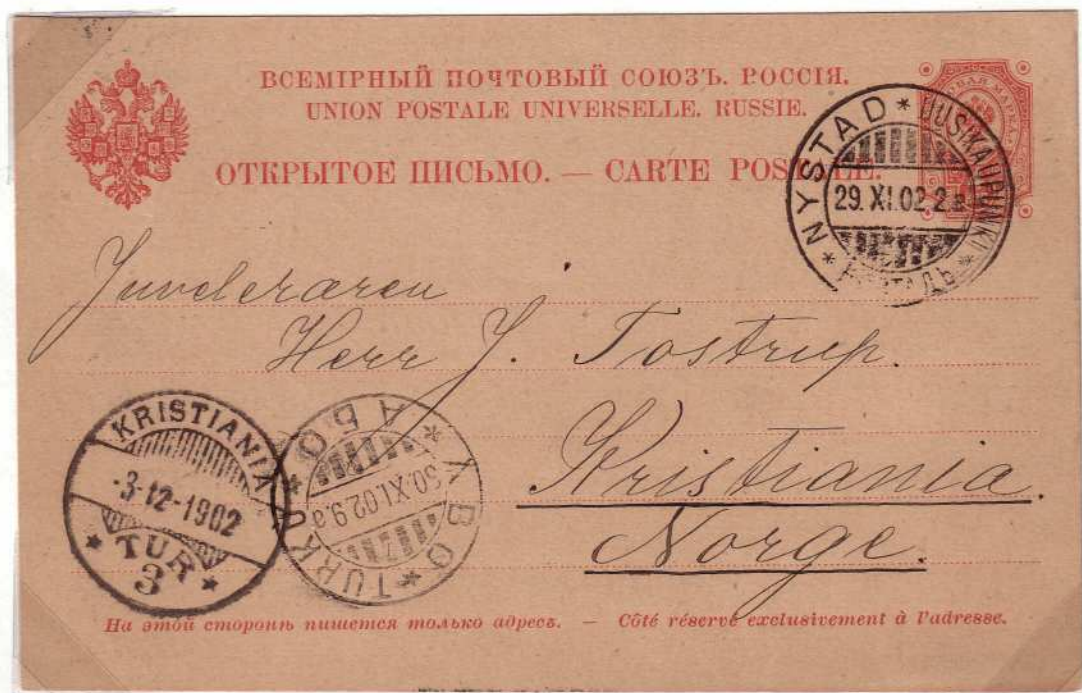 ВСЕМІРНЫЙ ПОЧТОВЫЙ СОЮЗЪ. РОССІЯ.
UNION POSTALE UNIVERSELLE. RUSSIE.
ОТКРЫТОЕ ПИСЬМО. — CARTE POSTALE.
МАРКА
* NYSTAD * UUSIKAUPUNKI *
29. XI.02. 2
Juveleraren
Herr J. Tostrup.
Kristiania.
Norge.
KRISTIANIA
-3-12-1902
* TUR *
3
* ÅBO * TURKU * АБО
30. XI.02. 9.a
На этой сторонѣ пишется только адресъ. — Côté réservé exclusivement à l'adresse.